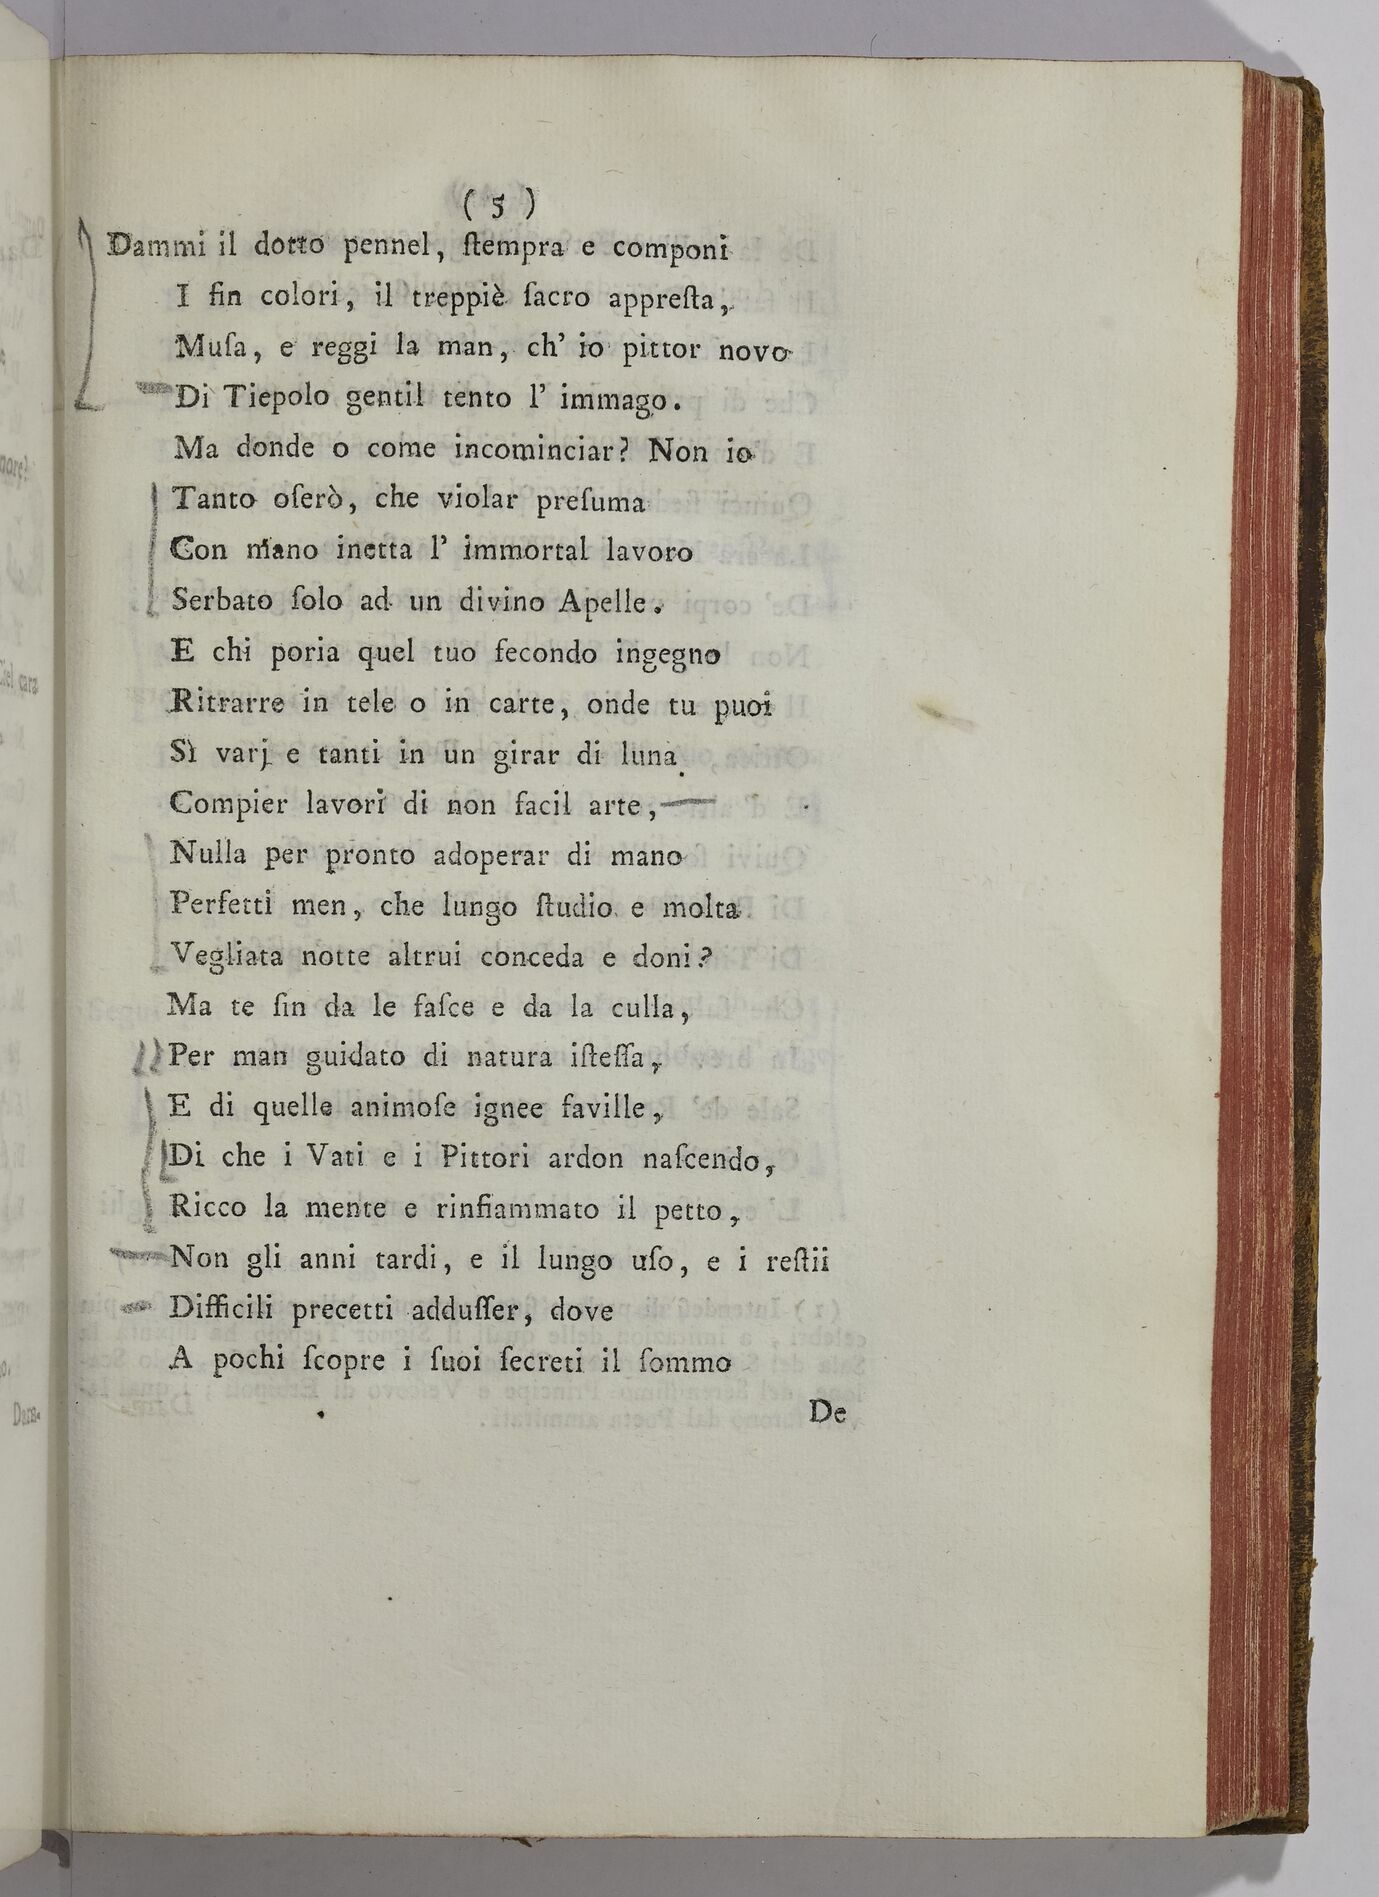 ( 5 )
Dammi il dotto pennel, ſtempra e componi
I fin colori, il treppiè ſacro appreſta,
Muſa, e reggi la man, ch' io pittor novo
Di Tiepolo gentil tento l' immago.
Ma donde o come incominciar? Non io
Tanto oſerò, che violar preſuma
Con mano inetta l' immortal lavoro
Serbato ſolo ad un divino Apelle.
E chi poria quel tuo fecondo ingegno
Ritrarre in tele o in carte, onde tu puoi
Sì varj e tanti in un girar di luna
Compier lavori di non facil arte,
Nulla per pronto adoperar di mano
Perfetti men, che lungo ſtudio e molta
Vegliata notte altrui conceda e doni?
Ma te ſin da le faſce e da la culla,
Per man guidato di natura iſteſſa,
E di quelle animoſe ignee faville,
Di che i Vati e i Pittori ardon naſcendo,
Ricco la mente e rinfiammato il petto,
Non gli anni tardi, e il lungo uſo, e i reſtii
Difficili precetti adduſſer, dove
A pochi ſcopre i ſuoi ſecreti il ſommo
De